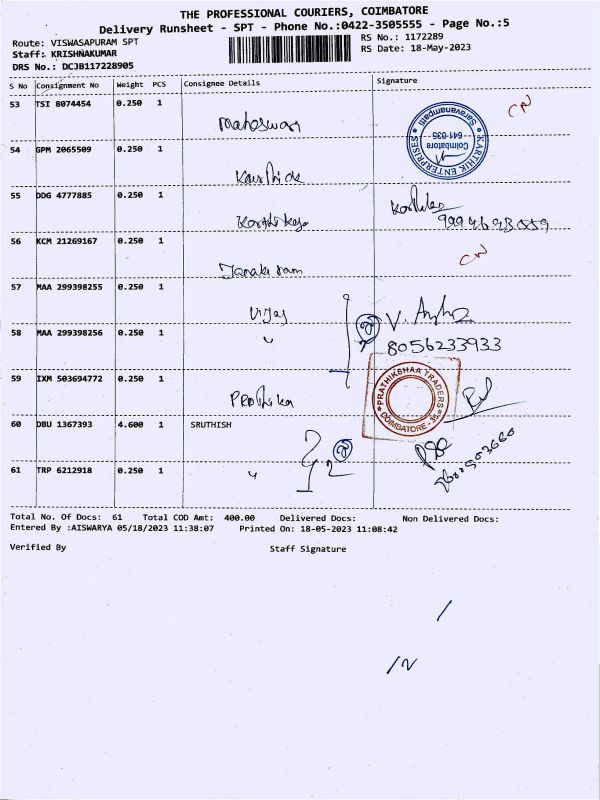 THE PROFESSIONAL COURIERS, COIMBATORE
Delivery Runsheet - SPT - Phone No.:0422-3505555 - Page No.:5
Route: VISWASAPURAM SPT RS No.: 1172289
Staff: KRISHNAKUMAR RS Date: 18-May-2023
DRS No.: DCJB117228905
S No Consignment No Weight PCS Consignee Details Signature
53 TSI 8074454 0.250 1 Maheswari CN
KARTHIK ENTERPRISES
Coimbatore
641-035
Saravanampatti
54 GPM 2065509 0.250 1 Karthick
55 DDG 4777885 0.250 1 Karthikeya
56 KCM 21269167 0.250 1 Janakiram CN
57 MAA 299398255 0.250 1 Vijay
58 MAA 299398256 0.250 1 "
8056233933
59 IXM 503694772 0.250 1 Prathika
PRATHIKSHAA TRADERS
COIMBATORE - 35
60 DBU 1367393 4.600 1 SRUTHISH
61 TRP 6212918 0.250 1 "
Total No. Of Docs: 61 Total COD Amt: 400.00 Delivered Docs: Non Delivered Docs:
Entered By :AISWARYA 05/18/2023 11:38:07 Printed On: 18-05-2023 11:08:42
Verified By Staff Signature